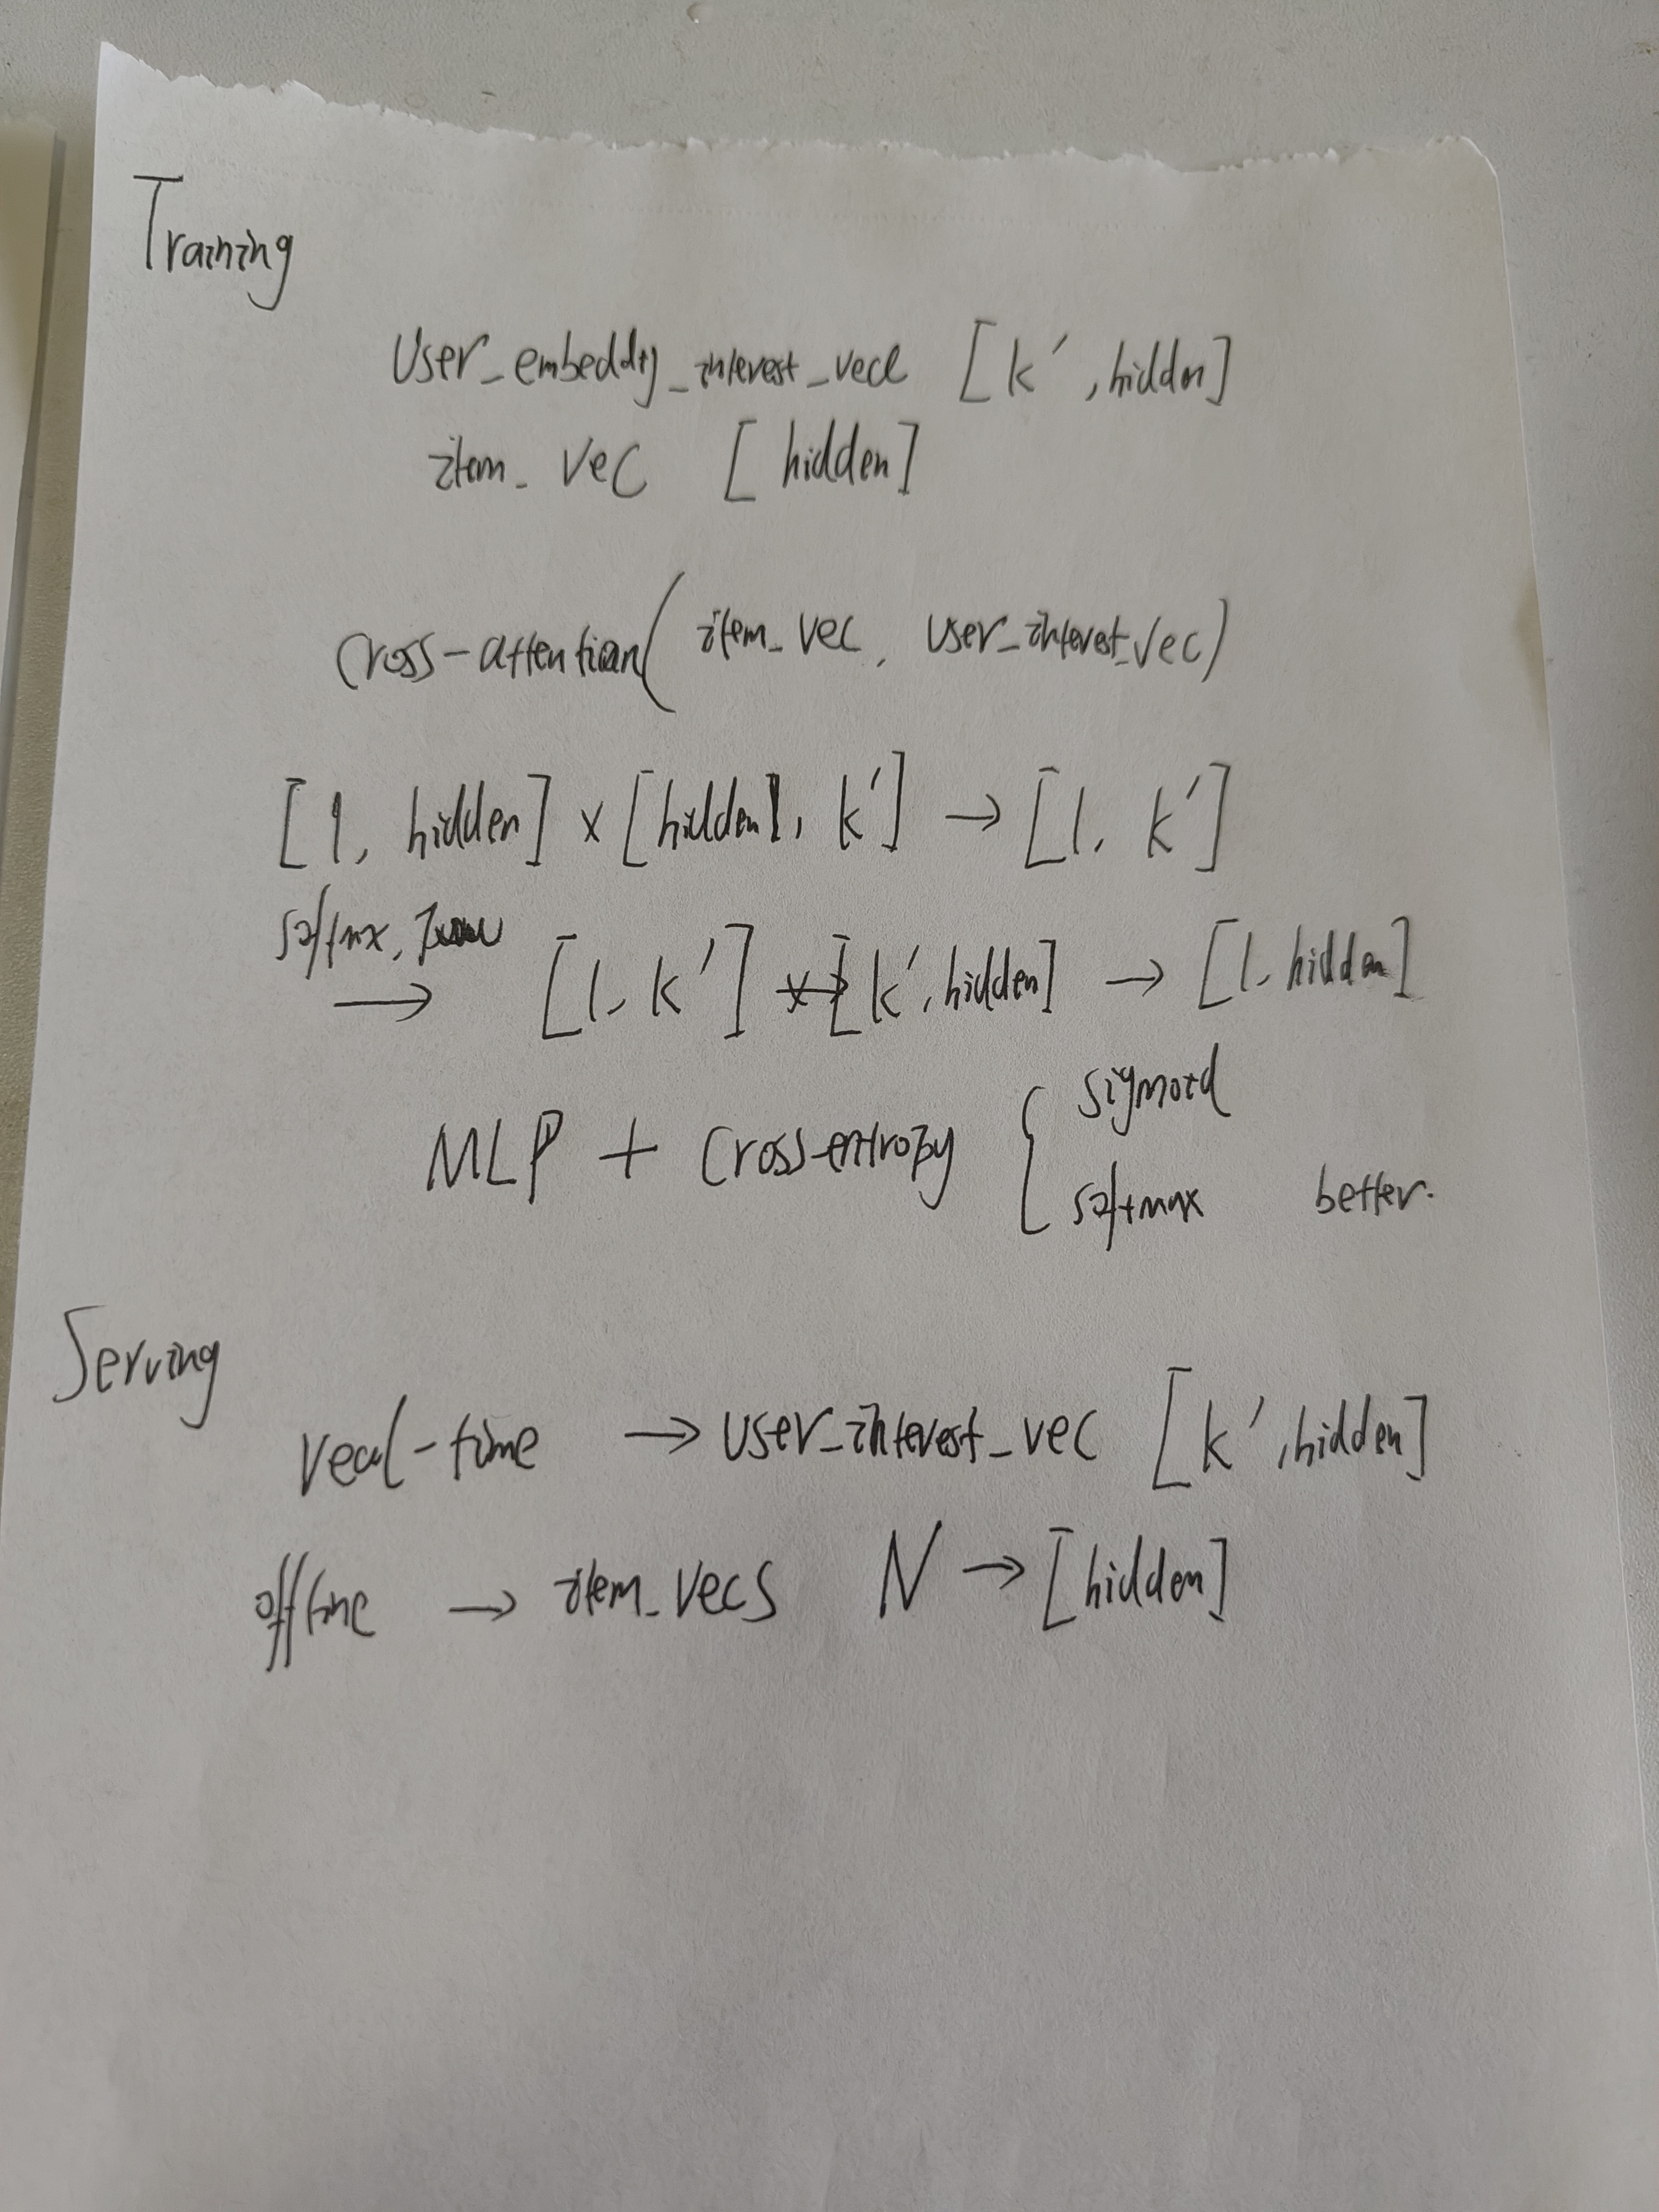 Training
User_embedding_interest_vec [k', hidden]
item_vec [hidden]
cross-attention(item_vec, user_interest_vec)
[1, hidden] x [hidden, k'] → [1, k']
softmax,
→ [1, k'] x [k', hidden] → [1, hidden]
MLP + Cross-entropy { sigmoid
softmax better.
Serving
real-time → user_interest_vec [k', hidden]
offline → item_vecs N → [hidden]